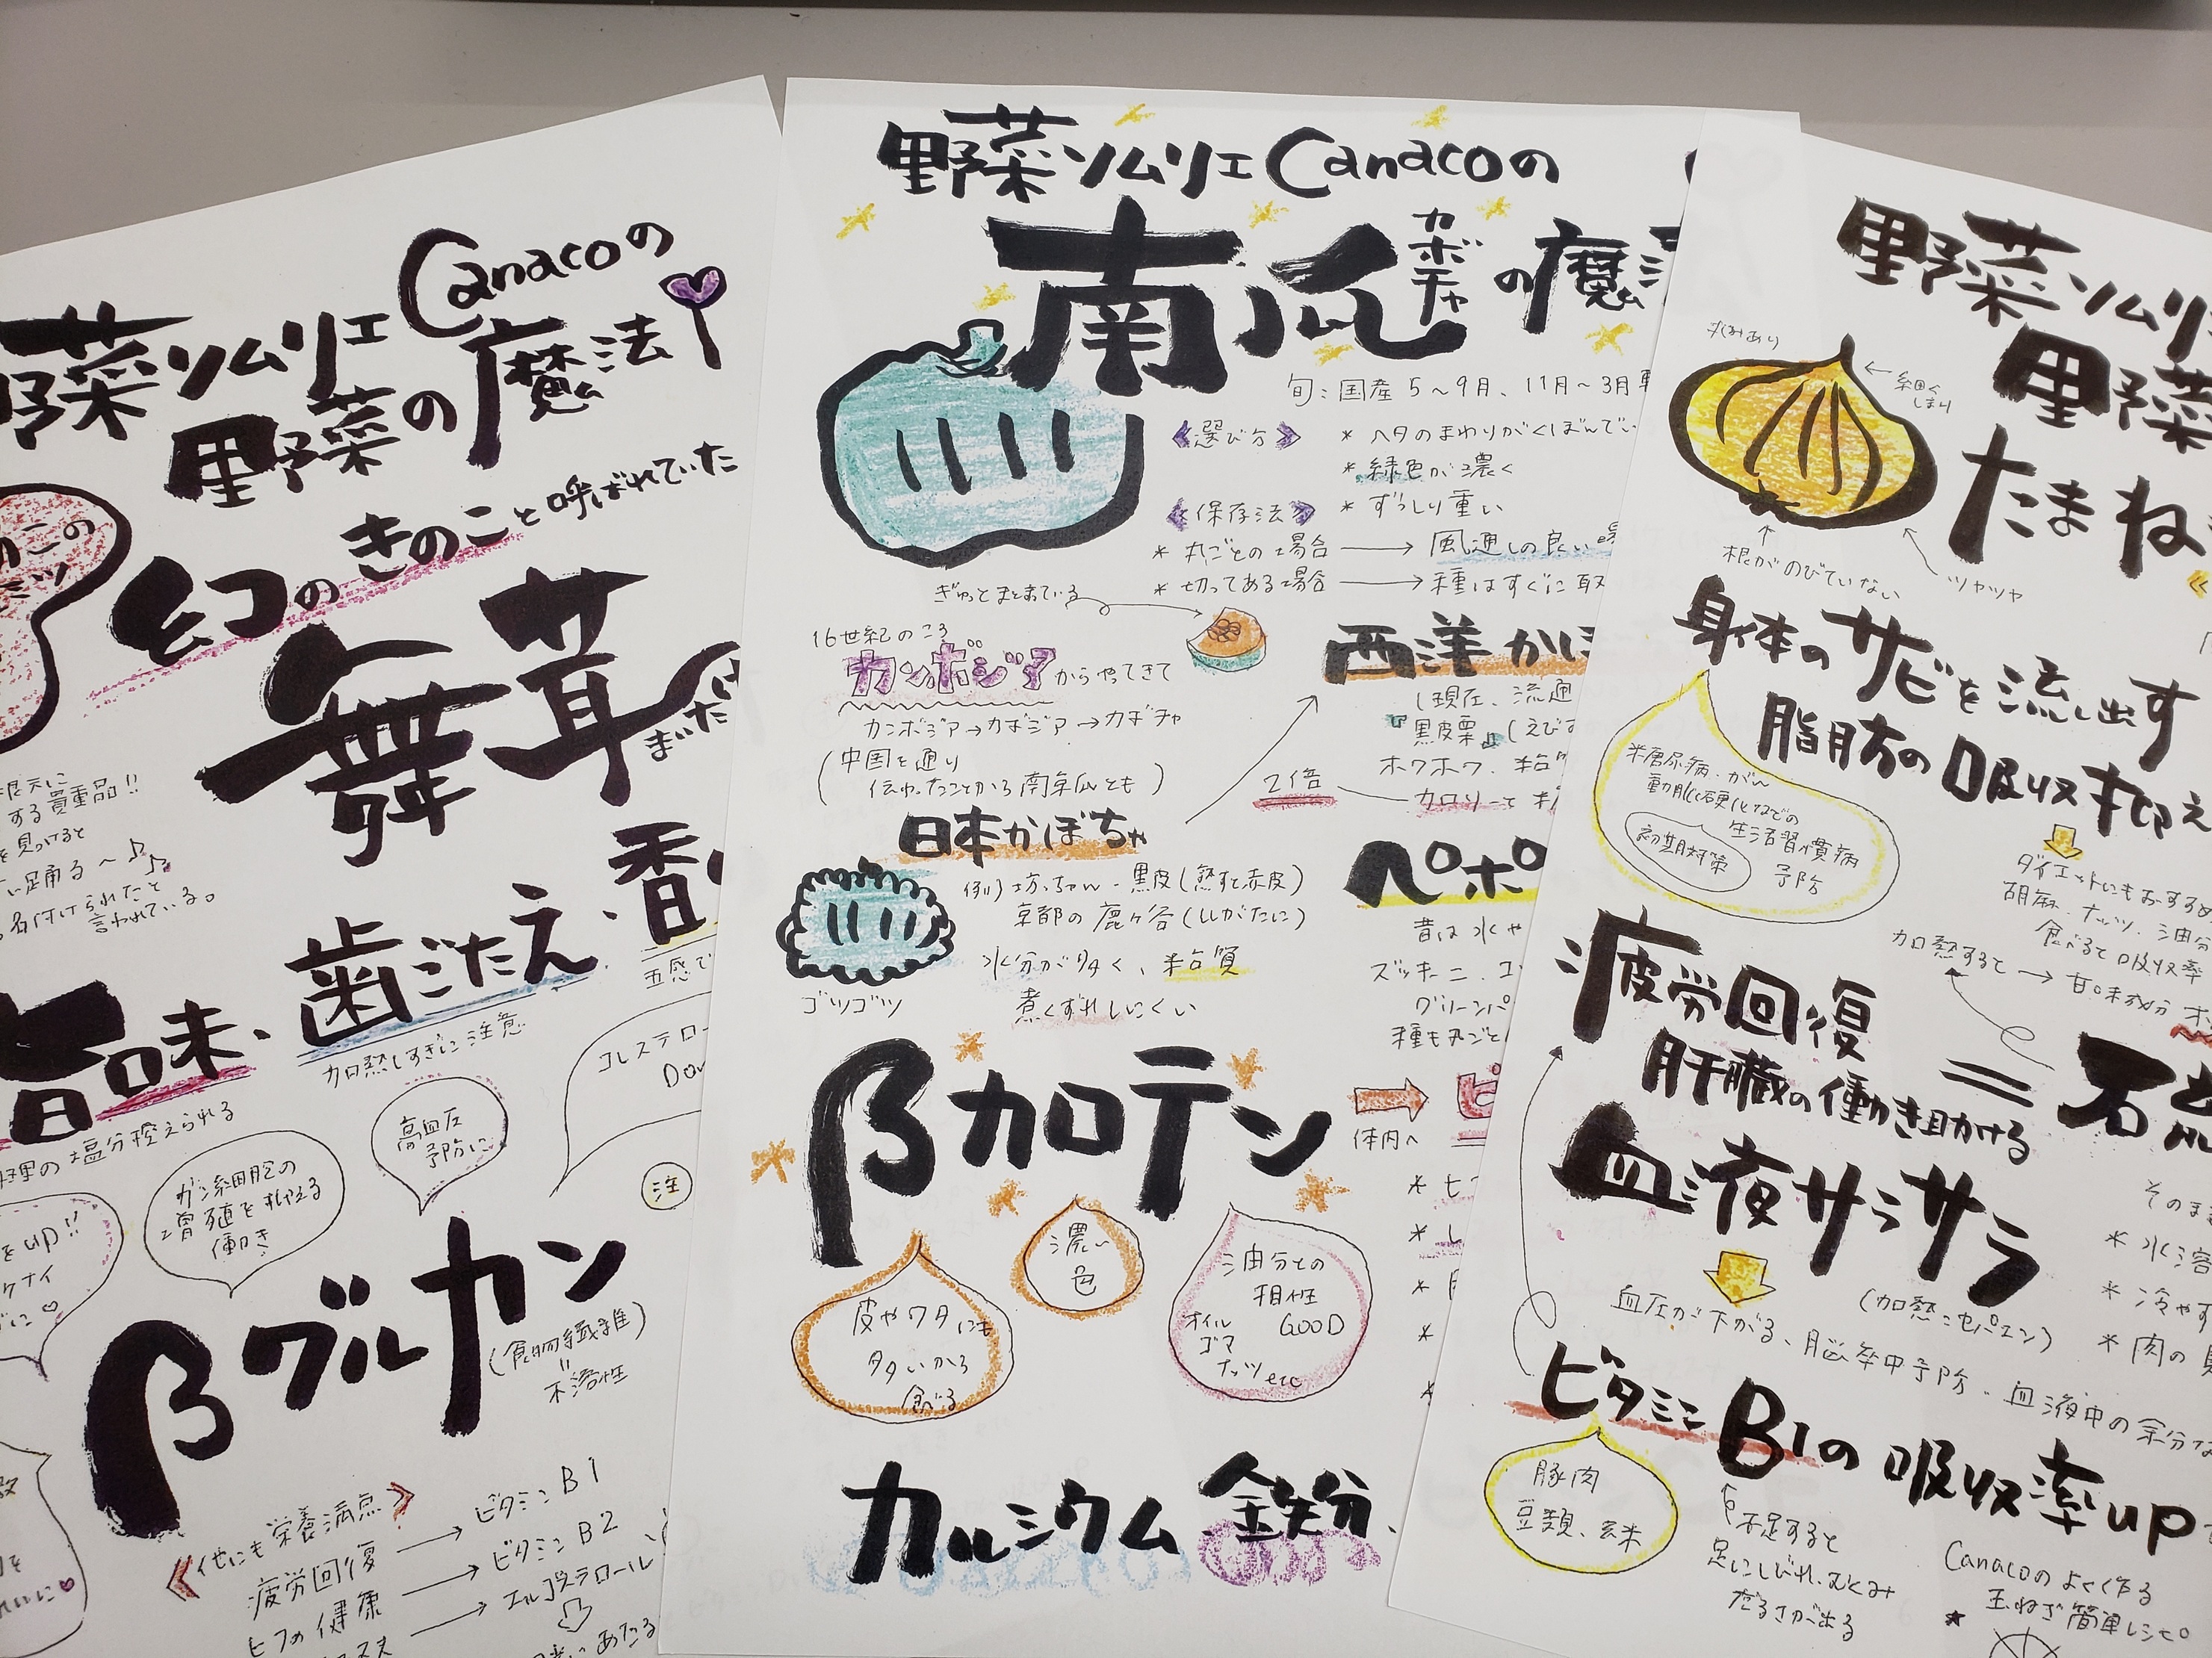 野菜ソムリエCanacoの
野菜の魔法
幻のきのこと呼ばれていた
舞茸
する貴重品!!
を見つけると
い踊る〜♪♪
名付けられたと
言われている。
旨味・歯ごたえ・香
料理の塩分控えられる
加熱しすぎに注意
五感で
コレステロー
Dow
高血圧
予防に
ガン細胞の
増殖を抑える
働き
注
をup!!
βグルカン
(食物繊維)
不溶性
《他にも栄養満点》
疲労回復→ビタミンB1
ヒフの健康→ビタミンB2
→エルゴステロール
あたる
野菜ソムリエCanacoの
南瓜カボチャの魔法
旬:国産5〜9月、11月〜3月
《選び方》
*ヘタのまわりがくぼんでい
*緑色が濃く
*ずっしり重い
《保存法》
*丸ごとの場合→風通しの良い場
*切ってある場合→種はすぐに取
ぎゅっとまとまっている
16世紀のころ
カンボジアからやってきて
カンボジア→カボジア→カボチャ
(中国を通り
伝わったことから南京瓜とも)
西洋かぼ
現在、流通
『黒皮栗』(えびす
ホクホク、粘
2倍
カロリーも
日本かぼちゃ
例)坊ちゃん・黒皮(熟すと赤皮)
京都の鹿ヶ谷(ししがたに)
水分が多く、粘質
煮くずれしにくい
ゴツゴツ
ペポ
昔は水や
ズッキーニ、コ
グリーンパ
種も丸ごと
βカロテン
体内へ
皮やワタにも
多いから
食べる
濃い
色
油分との
相性
GOOD
オイル
ゴマ
ナッツetc
カルシウム・鉄分、
野菜ソムリ
野菜
たまね
丸みあり
細く
しまり
根がのびていない
ツヤツヤ
身体のサビを流し出す
脂肪の吸収抑え
糖尿病・がん
動脈硬化などの
生活習慣病
予防
初期対策
ダイエットにもおすすめ
胡麻、ナッツ、油分
食べると吸収率
加熱すると→甘味成分
疲労回復
肝臓の働き助ける
血液サラサラ
(加熱:セパエン)
血圧が下がる、脳卒中予防、血液中の余分な
そのまま
*水溶
*冷やす
*肉の
ビタミンB1の吸収率up
豚肉
豆類、玄米
不足すると
足にしびれ、むくみ
だるさが出る
Canacoのよく作る
玉ねぎ簡単レシピ